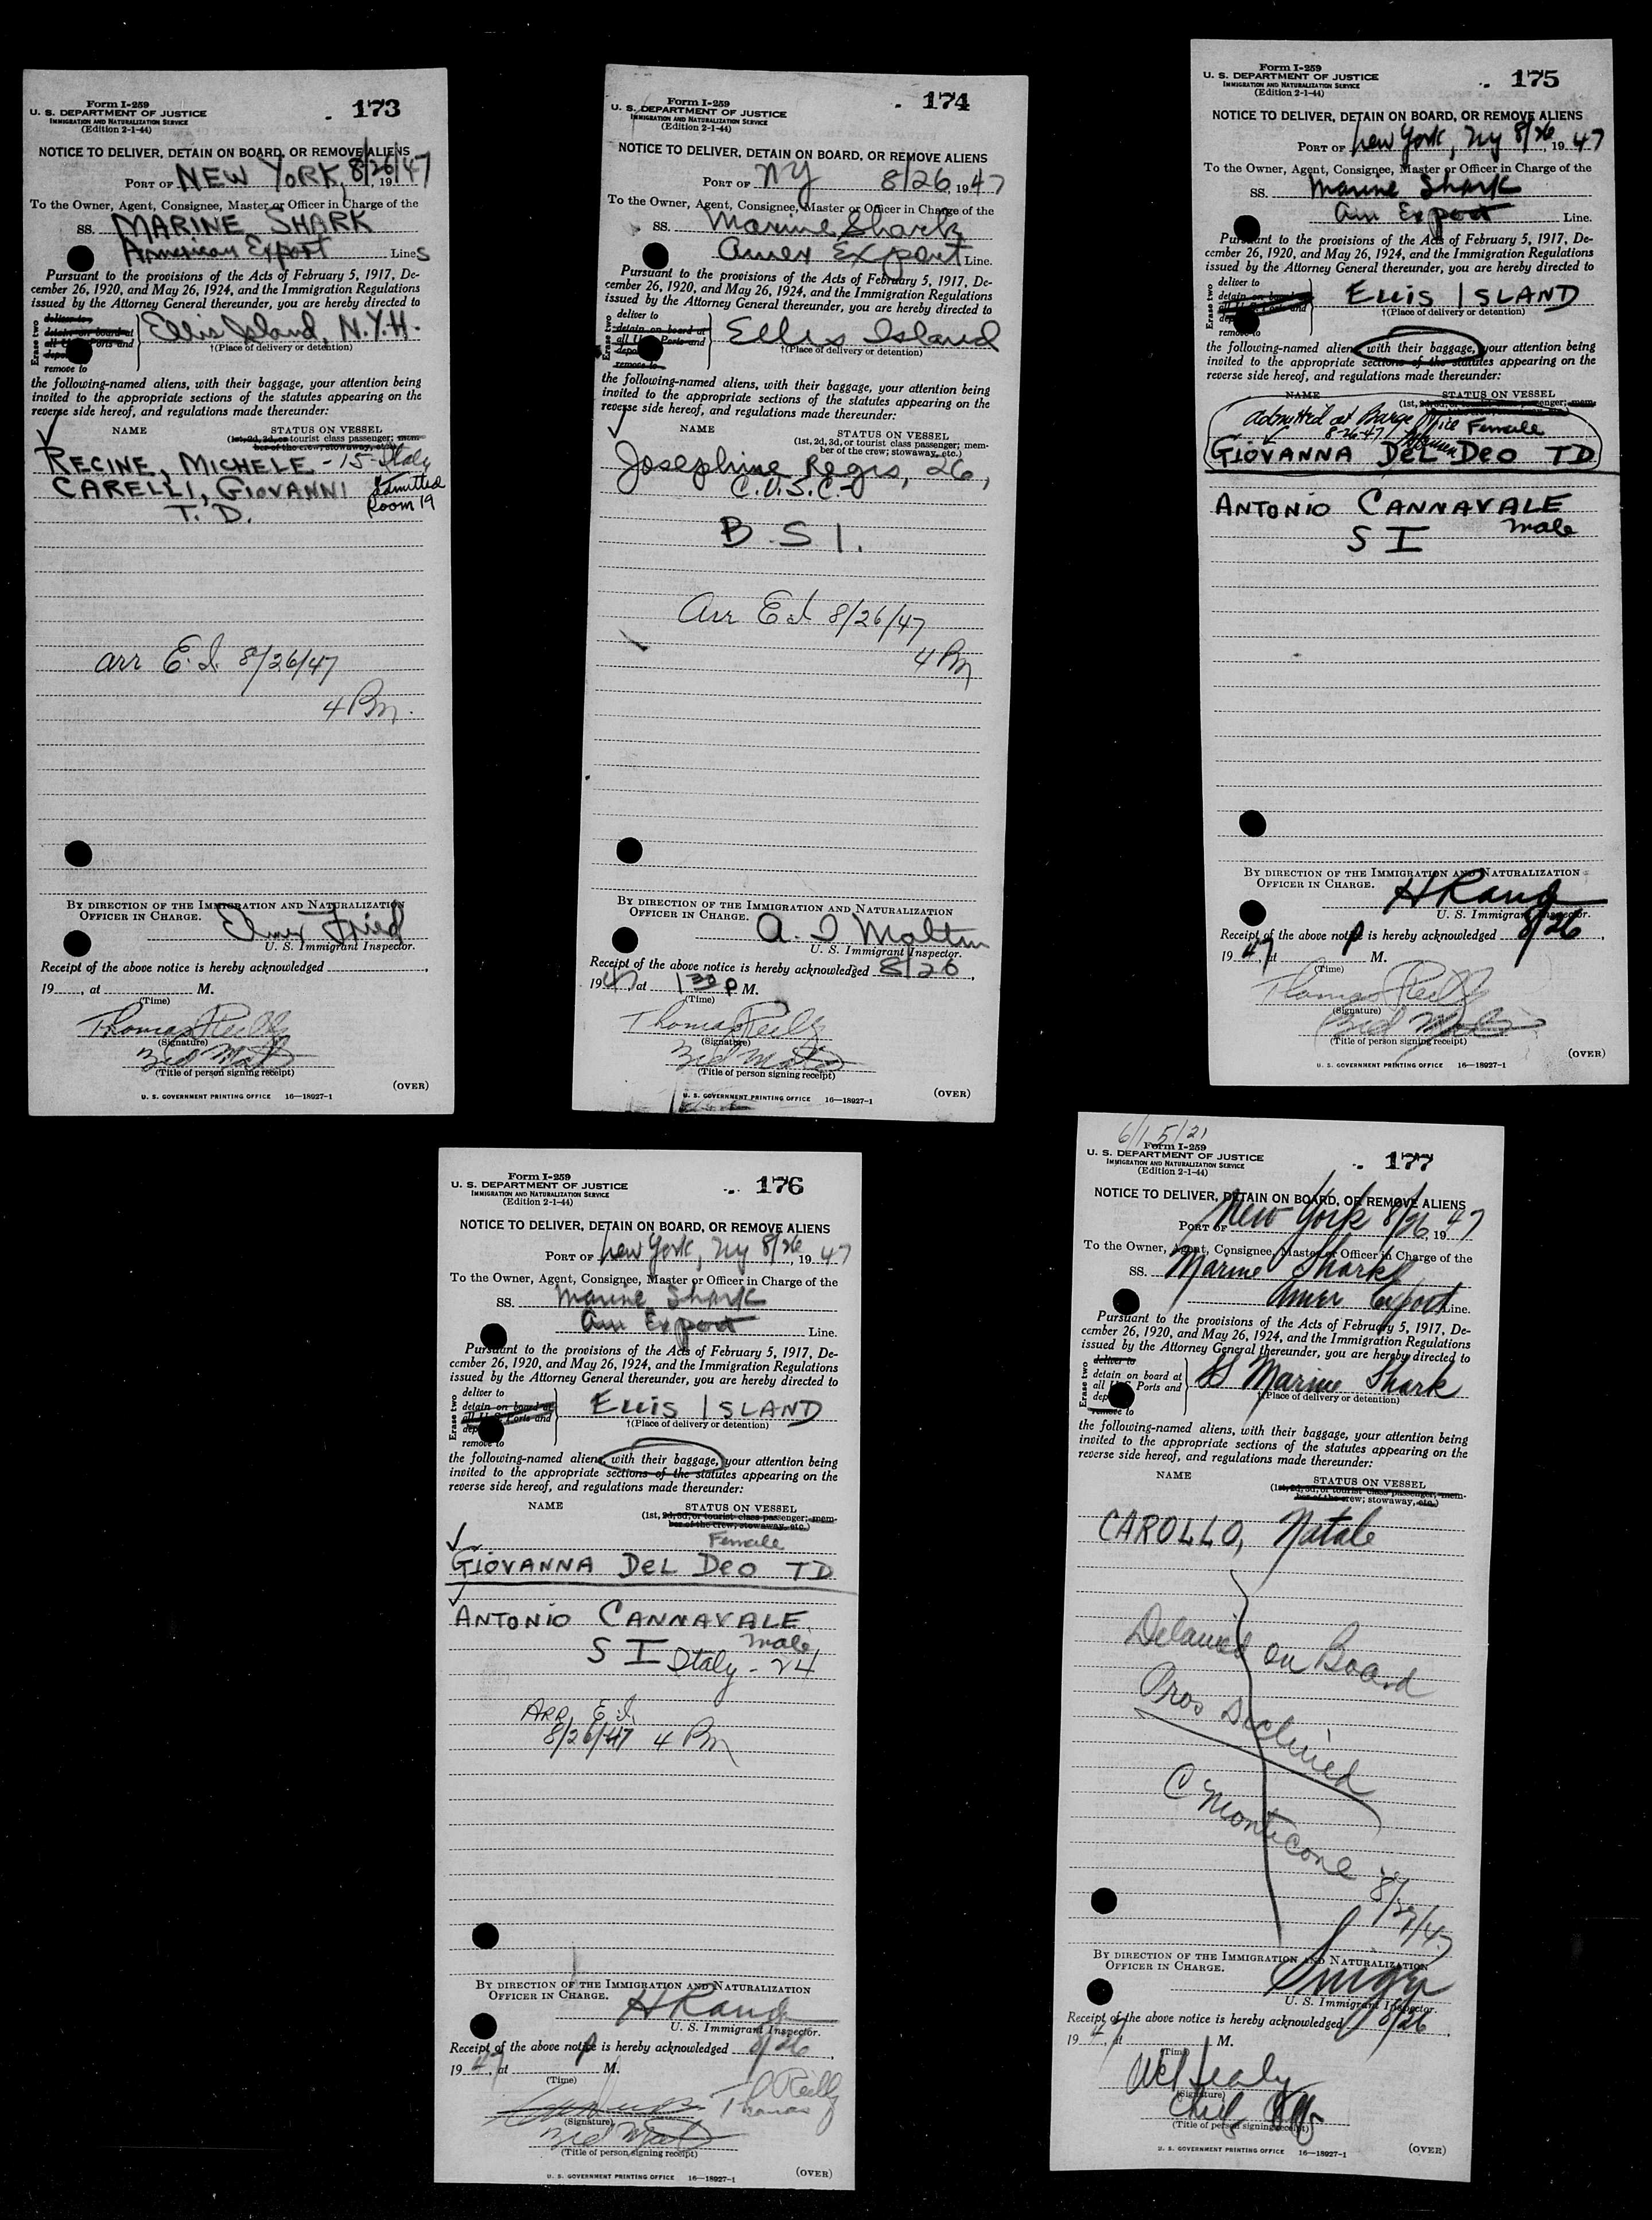 Form I-259
U. S. DEPARTMENT OF JUSTICE
IMMIGRATION AND NATURALIZATION SERVICE
(Edition 2-1-44)
173
NOTICE TO DELIVER, DETAIN ON BOARD, OR REMOVE ALIENS
PORT OF NEW YORK, 8/26/47 19
To the Owner, Agent, Consignee, Master or Officer in Charge of the
SS. MARINE SHARK
American Export Lines
Pursuant to the provisions of the Acts of February 5, 1917, De-
cember 26, 1920, and May 26, 1924, and the Immigration Regulations
issued by the Attorney General thereunder, you are hereby directed to
Erase two
deliver to
detain on board at
all U. S. Ports and
remove to
Ellis Island, N.Y.H.
†(Place of delivery or detention)
the following-named aliens, with their baggage, your attention being
invited to the appropriate sections of the statutes appearing on the
reverse side hereof, and regulations made thereunder:
NAME STATUS ON VESSEL
(1st, 2d, 3d, or tourist class passenger; mem-
ber of the crew; stowaway, etc.)
RECINE, MICHELE - 15 - Italy
CARELLI, GIOVANNI Admitted
T. D. Room 19
arr E. I. 8/26/47
4 Pm.
BY DIRECTION OF THE IMMIGRATION AND NATURALIZATION
OFFICER IN CHARGE.
Elmer Fried
U. S. Immigrant Inspector.
Receipt of the above notice is hereby acknowledged
19 , at M.
(Time)
Thomas Reilly
(Signature)
3rd Mate
(Title of person signing receipt)
(OVER)
U. S. GOVERNMENT PRINTING OFFICE 16—18927-1
Form I-259
U. S. DEPARTMENT OF JUSTICE
IMMIGRATION AND NATURALIZATION SERVICE
(Edition 2-1-44)
174
NOTICE TO DELIVER, DETAIN ON BOARD, OR REMOVE ALIENS
PORT OF NY 8/26 1947
To the Owner, Agent, Consignee, Master or Officer in Charge of the
SS. Marine Shark
Amer Export Line.
Pursuant to the provisions of the Acts of February 5, 1917, De-
cember 26, 1920, and May 26, 1924, and the Immigration Regulations
issued by the Attorney General thereunder, you are hereby directed to
Erase two
deliver to
detain on board at
all U. S. Ports and
remove to
Ellis Island
†(Place of delivery or detention)
the following-named aliens, with their baggage, your attention being
invited to the appropriate sections of the statutes appearing on the
reverse side hereof, and regulations made thereunder:
NAME STATUS ON VESSEL
(1st, 2d, 3d, or tourist class passenger; mem-
ber of the crew; stowaway, etc.)
Josephine Regis, 26,
C.U.S.C.
B. S I.
Arr E I 8/26/47
4 Pm
BY DIRECTION OF THE IMMIGRATION AND NATURALIZATION
OFFICER IN CHARGE.
A. I
U. S. Immigrant Inspector.
Receipt of the above notice is hereby acknowledged 8/26
1947 at 1 30 P M.
(Time)
Thomas Reilly
(Signature)
3rd Mate
(Title of person signing receipt)
(OVER)
U. S. GOVERNMENT PRINTING OFFICE 16—18927-1
Form I-259
U. S. DEPARTMENT OF JUSTICE
IMMIGRATION AND NATURALIZATION SERVICE
(Edition 2-1-44)
175
NOTICE TO DELIVER, DETAIN ON BOARD, OR REMOVE ALIENS
PORT OF New York, Ny 8/26 1947
To the Owner, Agent, Consignee, Master or Officer in Charge of the
SS. Marine Shark
Am Export Line.
Pursuant to the provisions of the Acts of February 5, 1917, De-
cember 26, 1920, and May 26, 1924, and the Immigration Regulations
issued by the Attorney General thereunder, you are hereby directed to
Erase two
deliver to
detain on board at
all U. S. Ports and
remove to
ELLIS ISLAND
†(Place of delivery or detention)
the following-named aliens, with their baggage, your attention being
invited to the appropriate sections of the statutes appearing on the
reverse side hereof, and regulations made thereunder:
NAME STATUS ON VESSEL
Admitted at Barge Office Female
8-26-47
GIOVANNA DEL DEO TD
ANTONIO CANNAVALE
S I male
BY DIRECTION OF THE IMMIGRATION AND NATURALIZATION
OFFICER IN CHARGE.
H Rand
U. S. Immigrant Inspector.
Receipt of the above notice is hereby acknowledged 8/26
1947, at P M.
(Time)
Thomas Reilly
(Signature)
3rd Mate
(Title of person signing receipt)
(OVER)
U. S. GOVERNMENT PRINTING OFFICE 16—18927-1
Form I-259
U. S. DEPARTMENT OF JUSTICE
IMMIGRATION AND NATURALIZATION SERVICE
(Edition 2-1-44)
176
NOTICE TO DELIVER, DETAIN ON BOARD, OR REMOVE ALIENS
PORT OF New York, Ny 8/26, 1947
To the Owner, Agent, Consignee, Master or Officer in Charge of the
SS. Marine Shark
Am Export Line.
Pursuant to the provisions of the Acts of February 5, 1917, De-
cember 26, 1920, and May 26, 1924, and the Immigration Regulations
issued by the Attorney General thereunder, you are hereby directed to
Erase two
deliver to
detain on board at
all U. S. Ports and
remove to
ELLIS ISLAND
†(Place of delivery or detention)
the following-named aliens, with their baggage, your attention being
invited to the appropriate sections of the statutes appearing on the
reverse side hereof, and regulations made thereunder:
NAME STATUS ON VESSEL
(1st, 2d, 3d, or tourist class passenger; mem-
ber of the crew; stowaway, etc.)
Female
GIOVANNA DEL DEO TD
ANTONIO CANNAVALE
male
S I Italy - 24
ARR. E I.
8/26/47 4 Pm
BY DIRECTION OF THE IMMIGRATION AND NATURALIZATION
OFFICER IN CHARGE.
H Rand
U. S. Immigrant Inspector.
Receipt of the above notice is hereby acknowledged 8/26
1947, at P M.
(Time)
Thomas Reilly
(Signature)
3rd Mate
(Title of person signing receipt)
(OVER)
U. S. GOVERNMENT PRINTING OFFICE 16—18927-1
6/15/21
Form I-259
U. S. DEPARTMENT OF JUSTICE
IMMIGRATION AND NATURALIZATION SERVICE
(Edition 2-1-44)
177
NOTICE TO DELIVER, DETAIN ON BOARD, OR REMOVE ALIENS
PORT OF New York 8/26 1947
To the Owner, Agent, Consignee, Master or Officer in Charge of the
SS. Marine Shark
Amer Export Line.
Pursuant to the provisions of the Acts of February 5, 1917, De-
cember 26, 1920, and May 26, 1924, and the Immigration Regulations
issued by the Attorney General thereunder, you are hereby directed to
Erase two
deliver to
detain on board at
all U. S. Ports and
remove to
SS Marine Shark
†(Place of delivery or detention)
the following-named aliens, with their baggage, your attention being
invited to the appropriate sections of the statutes appearing on the
reverse side hereof, and regulations made thereunder:
NAME STATUS ON VESSEL
(1st, 2d, 3d, or tourist class passenger; mem-
ber of the crew; stowaway, etc.)
CAROLLO, Natale
Detained on Board
Pros declined
C Monticone
8/27/47
BY DIRECTION OF THE IMMIGRATION AND NATURALIZATION
OFFICER IN CHARGE.
U. S. Immigrant Inspector.
Receipt of the above notice is hereby acknowledged 8/26
1947, at M.
(Time)
(Signature)
Chief
(Title of person signing receipt)
(OVER)
U. S. GOVERNMENT PRINTING OFFICE 16—18927-1